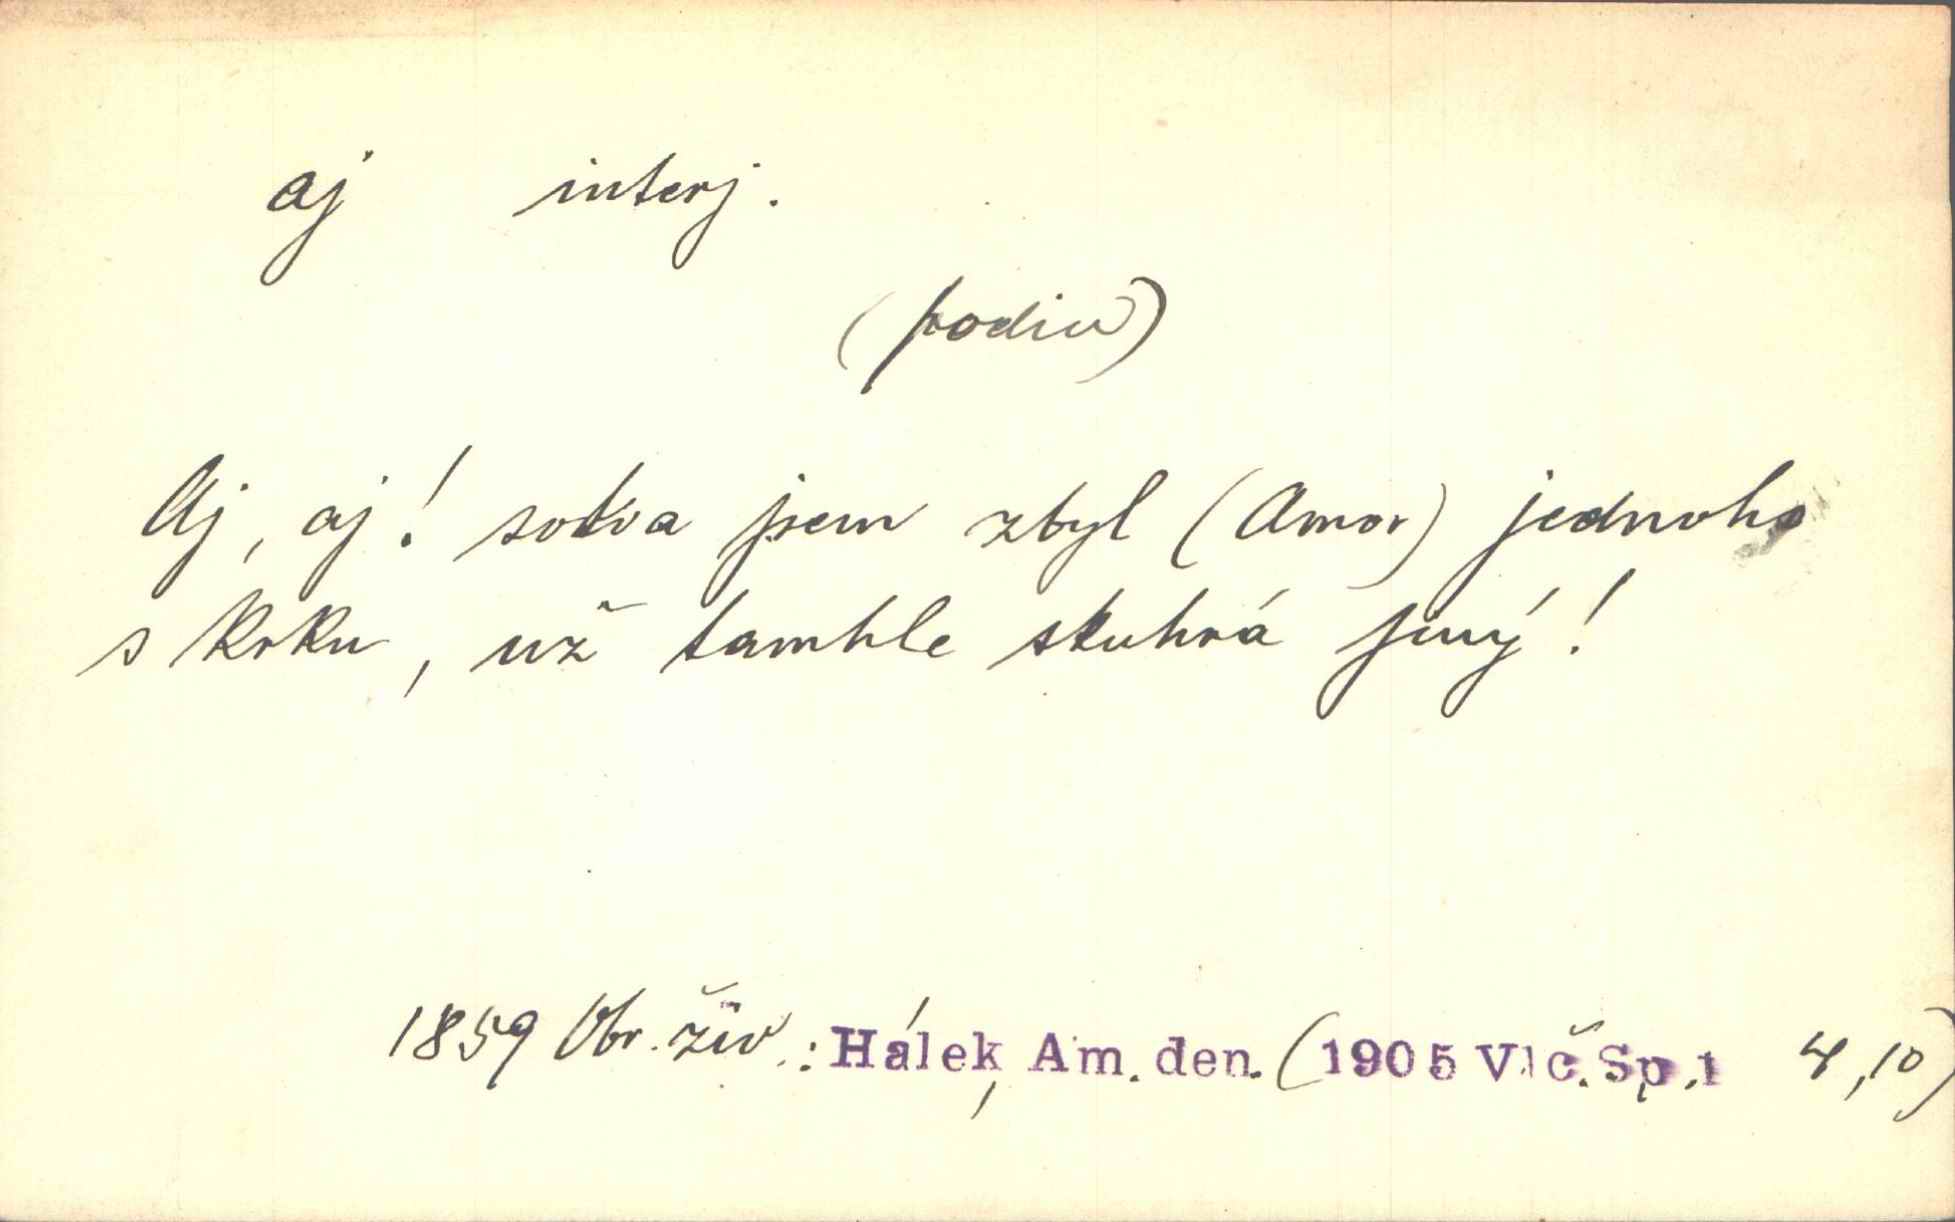 aj interj.
(podiv)
Aj, aj! sotva jsem zbyl (Amor) jednoho
s krku, už tamhle skuhrá jiný!
1859 Obr. živ.: Hálek, Am. den. (1905 Vlč. Sp. 1 4,10)